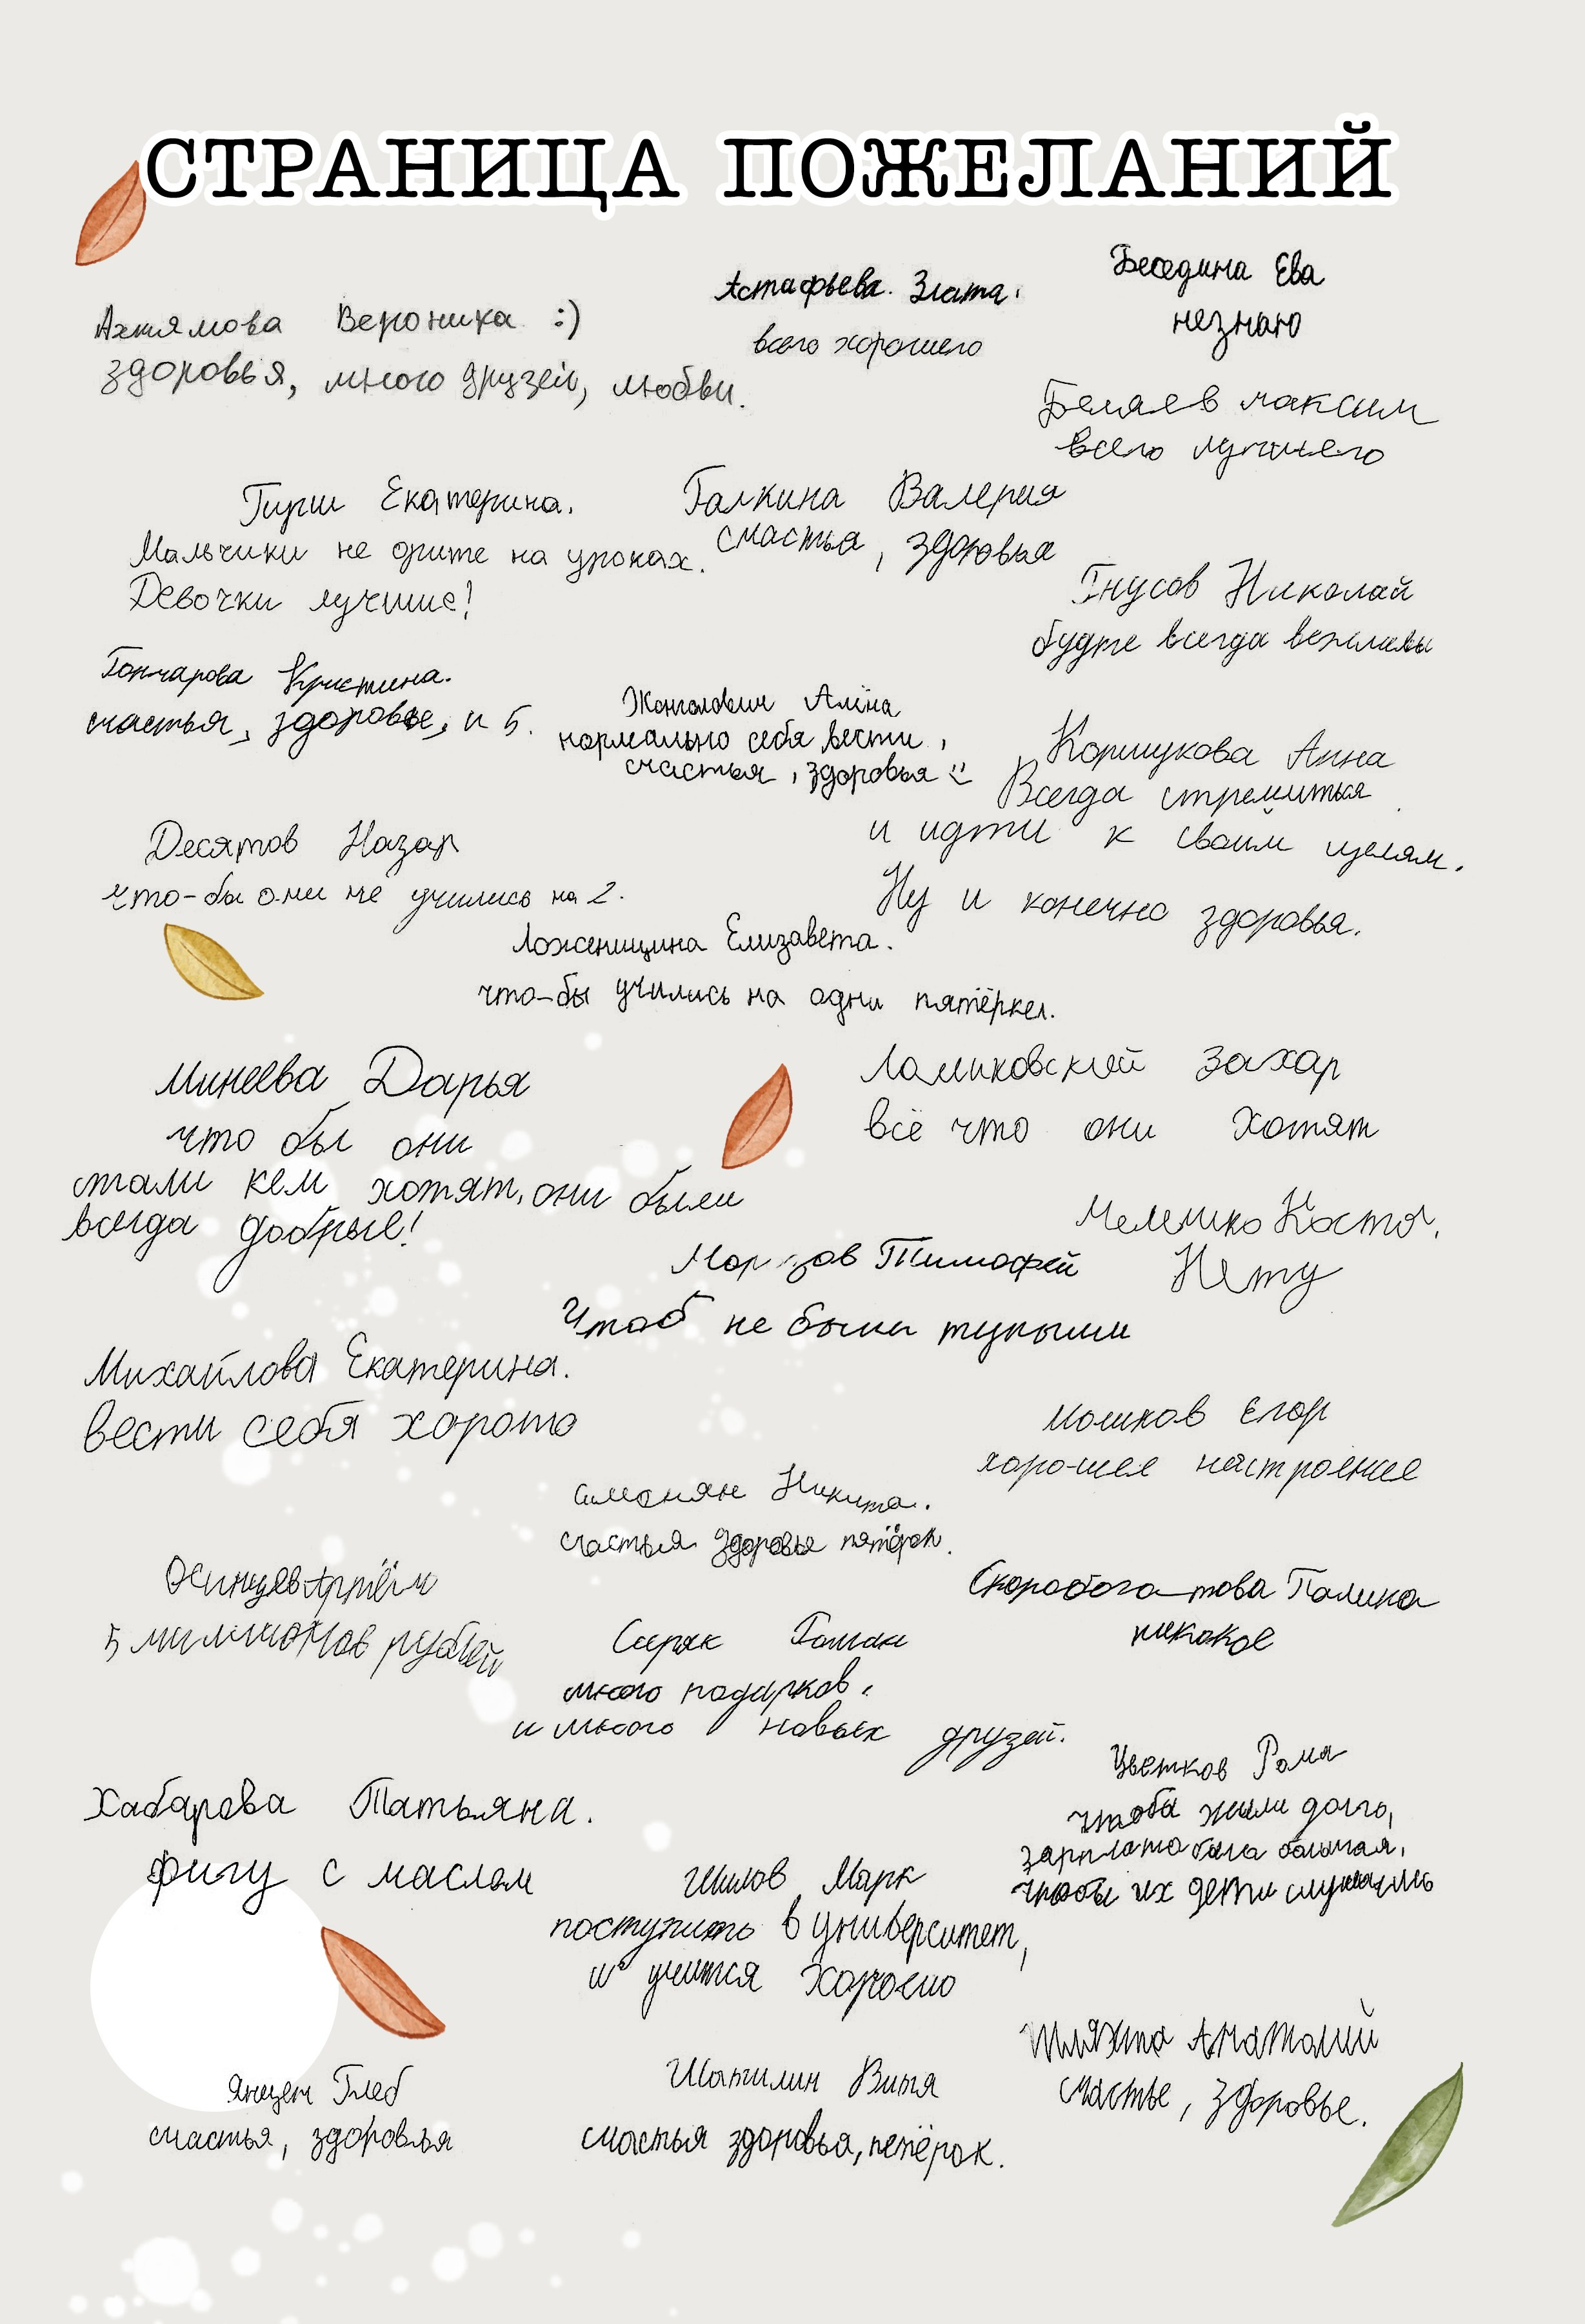 СТРАНИЦА ПОЖЕЛАНИЙ
Ахтямова Вероника :)
здоровья, много друзей, любви.
Астафьева. Злата.
всего хорошего
Беседина Ева
незнаю
Беляев максим
всего лучшего
Гирш Екатерина.
Мальчики не орите на уроках.
Девочки лучшие!
Галкина Валерия
счастья, здоровья
Гнусов Николай
будте всегда вежливы
Гончарова Кристина.
счастья, здоровье, и 5.
Алина
нормально себя вести,
счастья, здоровья
Коршукова Анна
Всегда стремиться
и идти к своим целям.
Ну и конечно здоровья.
Десятов Назар
что-бы они не учились на 2.
Ложенищина Елизавета.
что-бы учились на одни пятёрки.
Минеева Дарья
что бы они
стали кем хотят, они были
всегда добрые!
Ламиковский Захар
всё что они хотят
Костя.
Нету
Тимофей
Чтоб не были тупыми
Михайлова Екатерина.
вести себя хорошо
Егор
хорошее настроение
Симонян Никита.
счастья здоровье пятёрок.
Осинцев Артём
5 миллионов рублей
Скоробогатова Полина
никакое
Сиряк Роман
много подарков,
и много новых друзей.
Цветков Рома
чтобы жили долго,
зарплата была большая,
чтобы их дети слушались
Хабарова Татьяна.
фигу с маслом
Шилов Марк
поступить в университет,
и учится хорошо
Шляхта Анатолий
счастье, здоровье.
Янцен Глеб
счастья, здоровья
Шатилин Витя
счастья здоровья, петёрок.